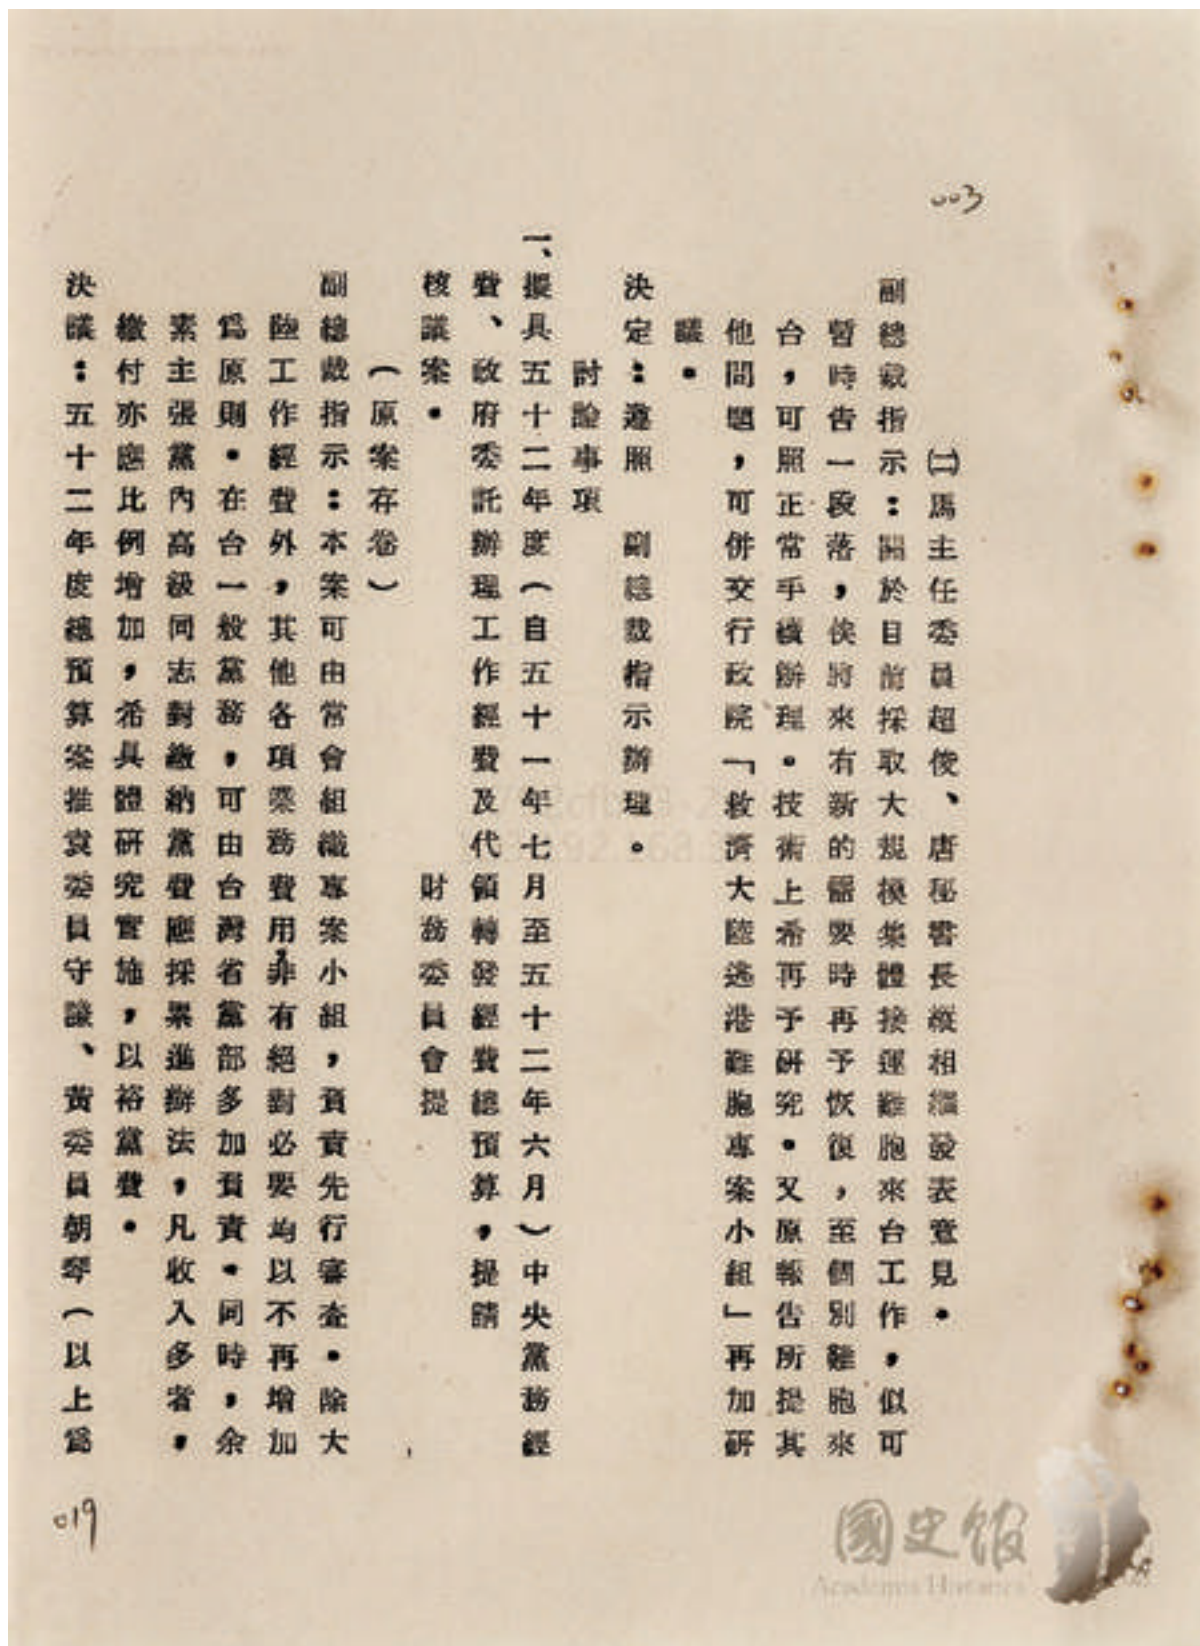 003
㈡馬主任委員超俊、唐秘書長縱相繼發表意見。
副總裁指示：關於目前採取大規模集體接運難胞來台工作，似可
暫時告一段落，俟將來有新的需要時再予恢復，至個別難胞來
台，可照正常手續辦理。技術上希再予研究。又原報告所提其
他問題，可併交行政院「救濟大陸逃港難胞專案小組」再加研
議。
決定：遵照　副總裁指示辦理。
討論事項
一、擬具五十二年度（自五十一年七月至五十二年六月）中央黨務經
費、政府委託辦理工作經費及代領轉發經費總預算，提請
核議案。　財務委員會提
（原案存卷）
副總裁指示：本案可由常會組織專案小組，負責先行審查。除大
陸工作經費外，其他各項業務費用，非有絕對必要均以不再增加
爲原則。在台一般黨務，可由台灣省黨部多加負責。同時，余
素主張黨內高級同志對繳納黨費應採累進辦法，凡收入多者，
繳付亦應比例增加，希具體研究實施，以裕黨費。
決議：五十二年度總預算案推袁委員守謙、黃委員朝琴（以上爲
019
國史館
Academia Historica